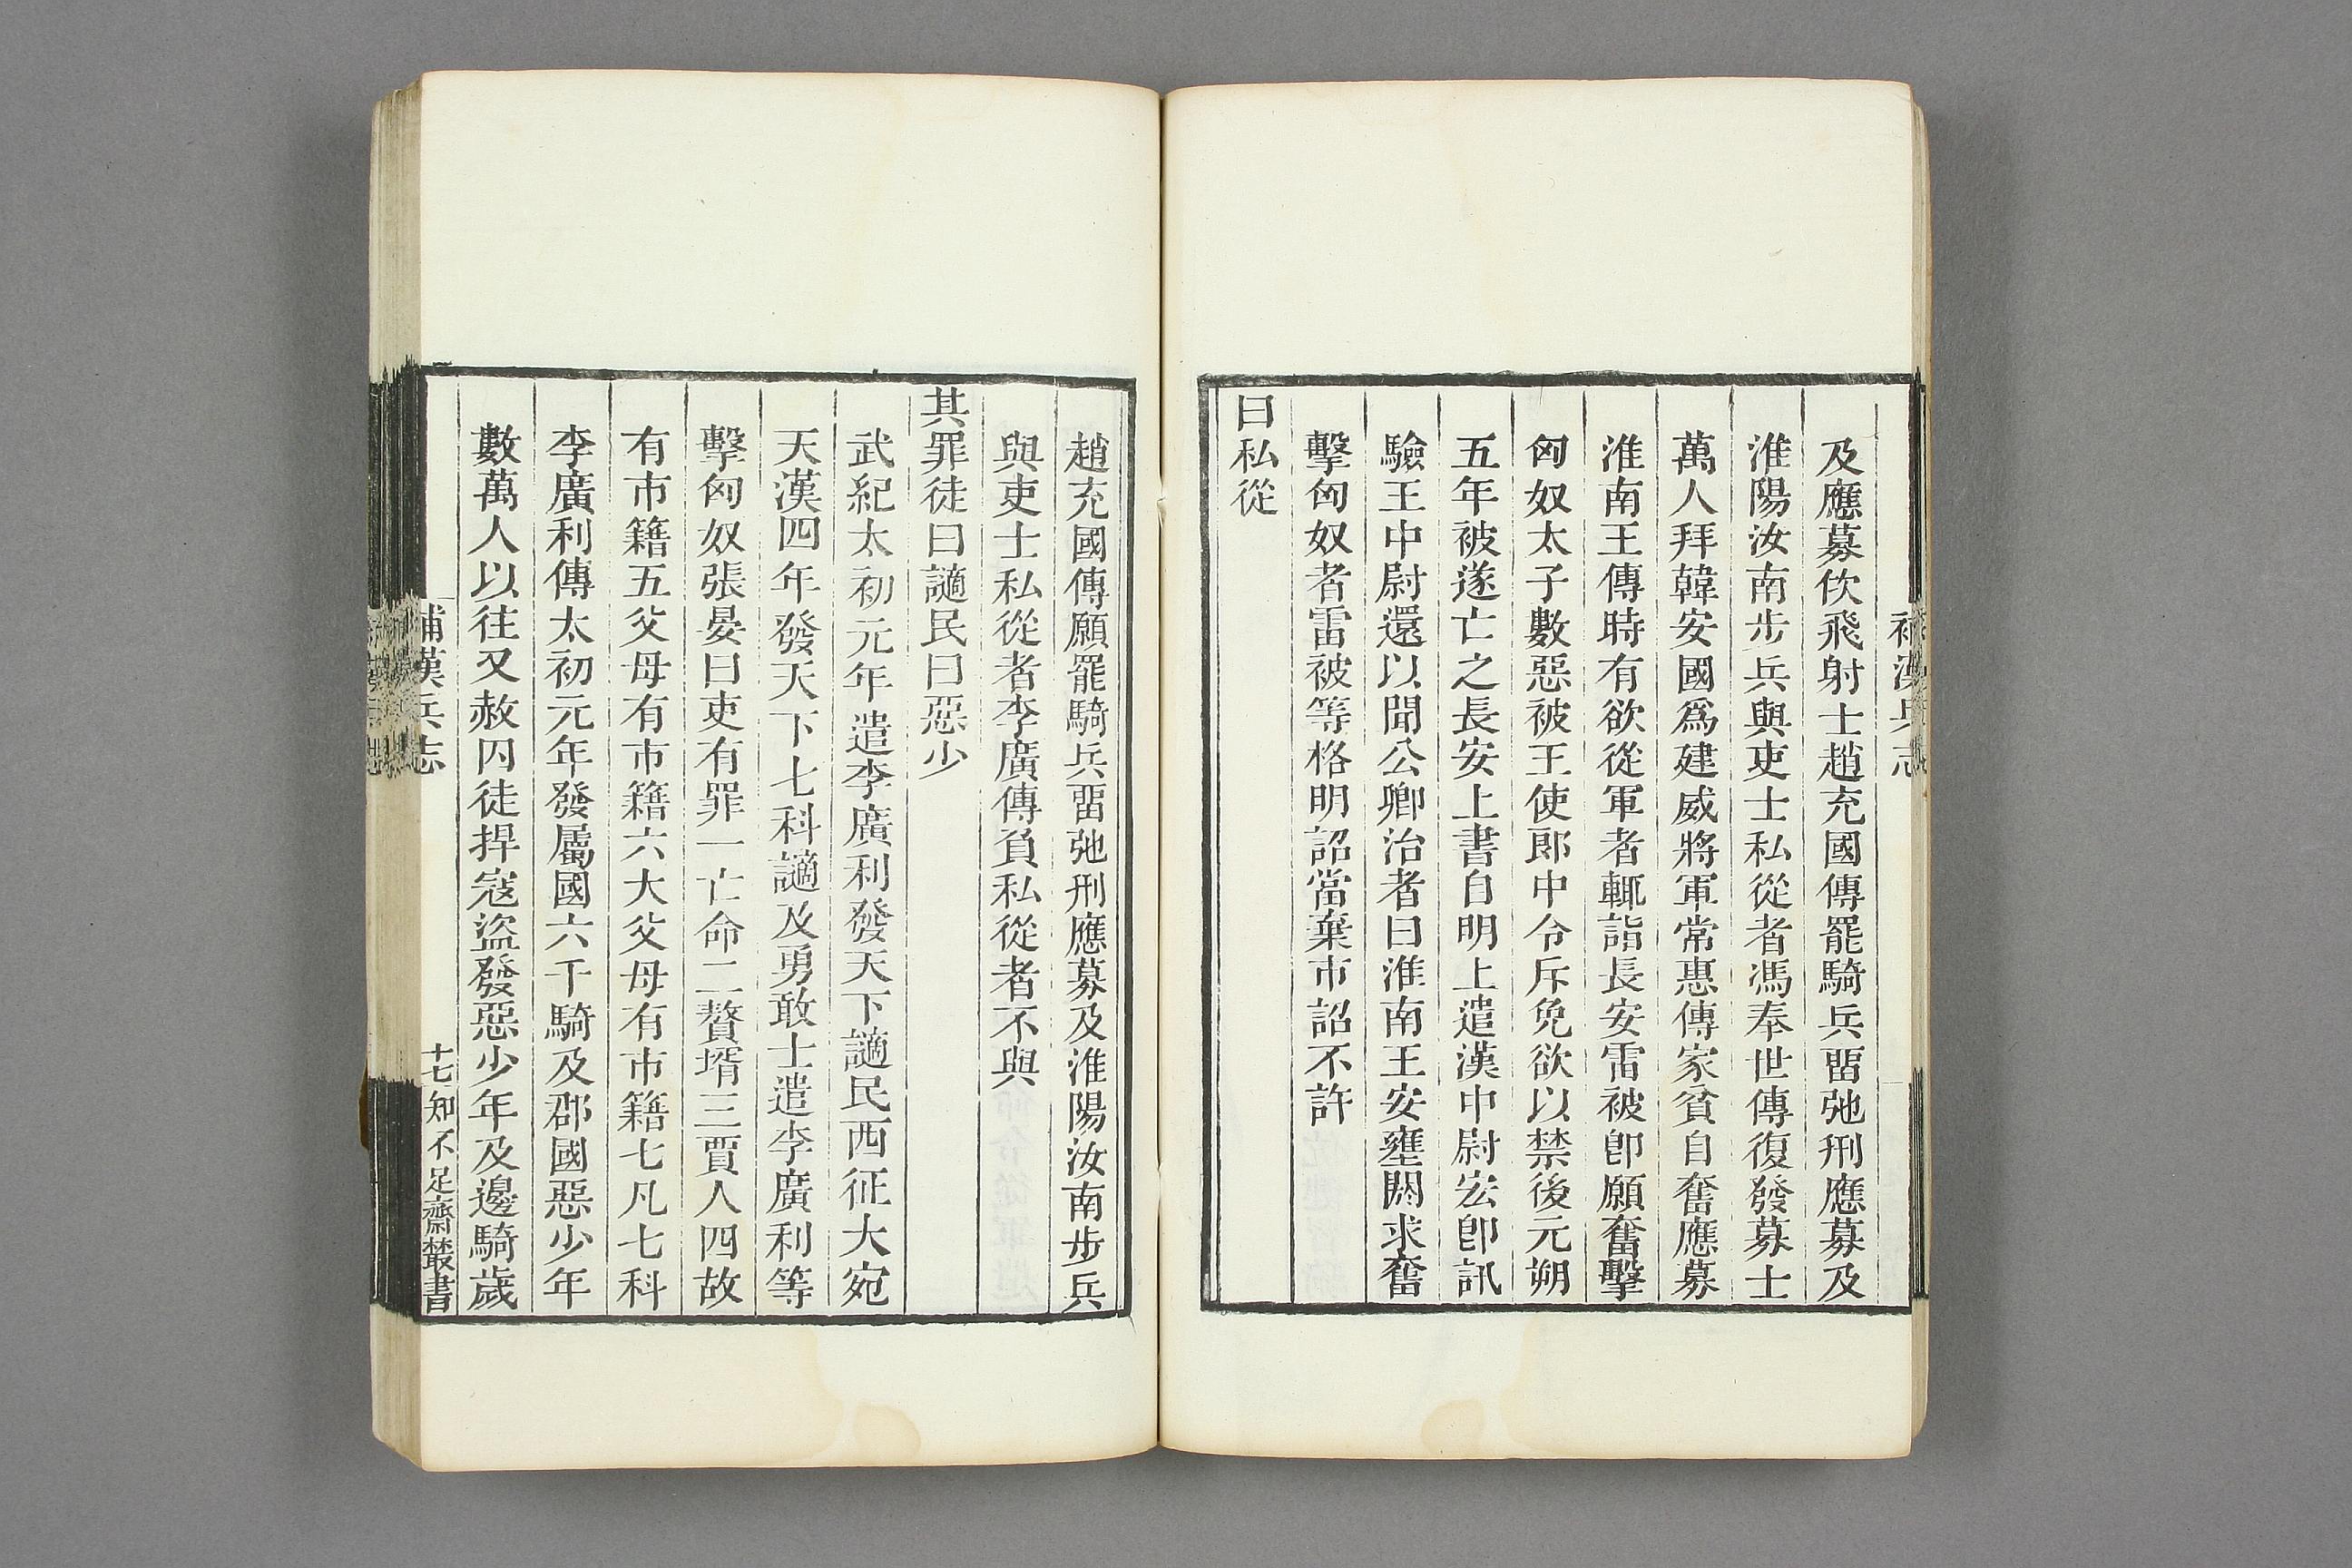 補漢兵志
及應募佽飛射士趙充國傳罷騎兵畱弛刑應募及
淮陽汝南步兵與吏士私從者馮奉世傳復發募士
萬人拜韓安國爲建威將軍常惠傳家貧自奮應募
淮南王傳時有欲從軍者輒詣長安雷被卽願奮擊
匈奴太子數惡被王使郎中令斥免欲以禁後元朔
五年被遂亡之長安上書自明上遣漢中尉宏卽訊
驗王中尉還以聞公卿治者曰淮南王安壅閼求奮
擊匈奴者雷被等格明詔當棄市詔不許
曰私從
趙充國傳願罷騎兵畱弛刑應募及淮陽汝南步兵
與吏士私從者李廣傳負私從者不與
其罪徒曰讁民曰惡少
武紀太初元年遣李廣利發天下讁民西征大宛
天漢四年發天下七科讁及勇敢士遣李廣利等
擊匈奴張晏曰吏有罪一亡命二贅壻三賈人四故
有市籍五父母有市籍六大父母有市籍七凡七科
李廣利傳太初元年發屬國六千騎及郡國惡少年
數萬人以往又赦囚徒捍寇盜發惡少年及邊騎歲
補漢兵志
十七
知不足齋叢書